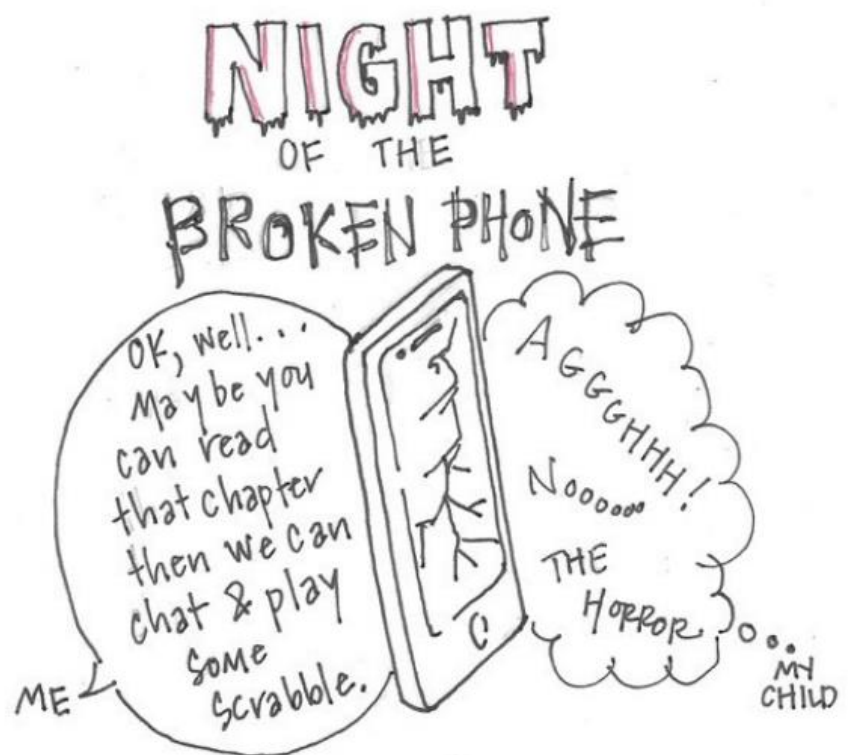 NIGHT
OF THE
BROKEN PHONE
OK, well...
Maybe you
can read
that chapter
then we can
chat & play
some
scrabble.
ME
AGGGGHHH!
Noooooo
THE
HORROR
MY
CHILD